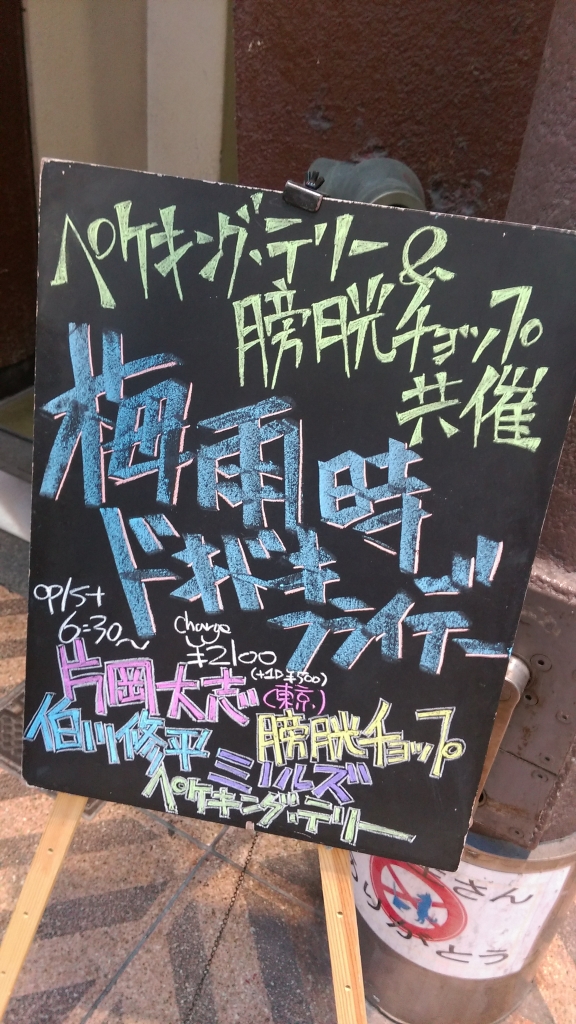 ペケキング・テリー&
膀胱チョップ
共催
梅雨時
ドキドキ
フライデー
op/st
6:30~
charge
¥2100
(+1D¥500)
片岡大志(東京)
伯川修平
膀胱チョップ
ミリルズ
ペケキング・テリー
さん
りがとう